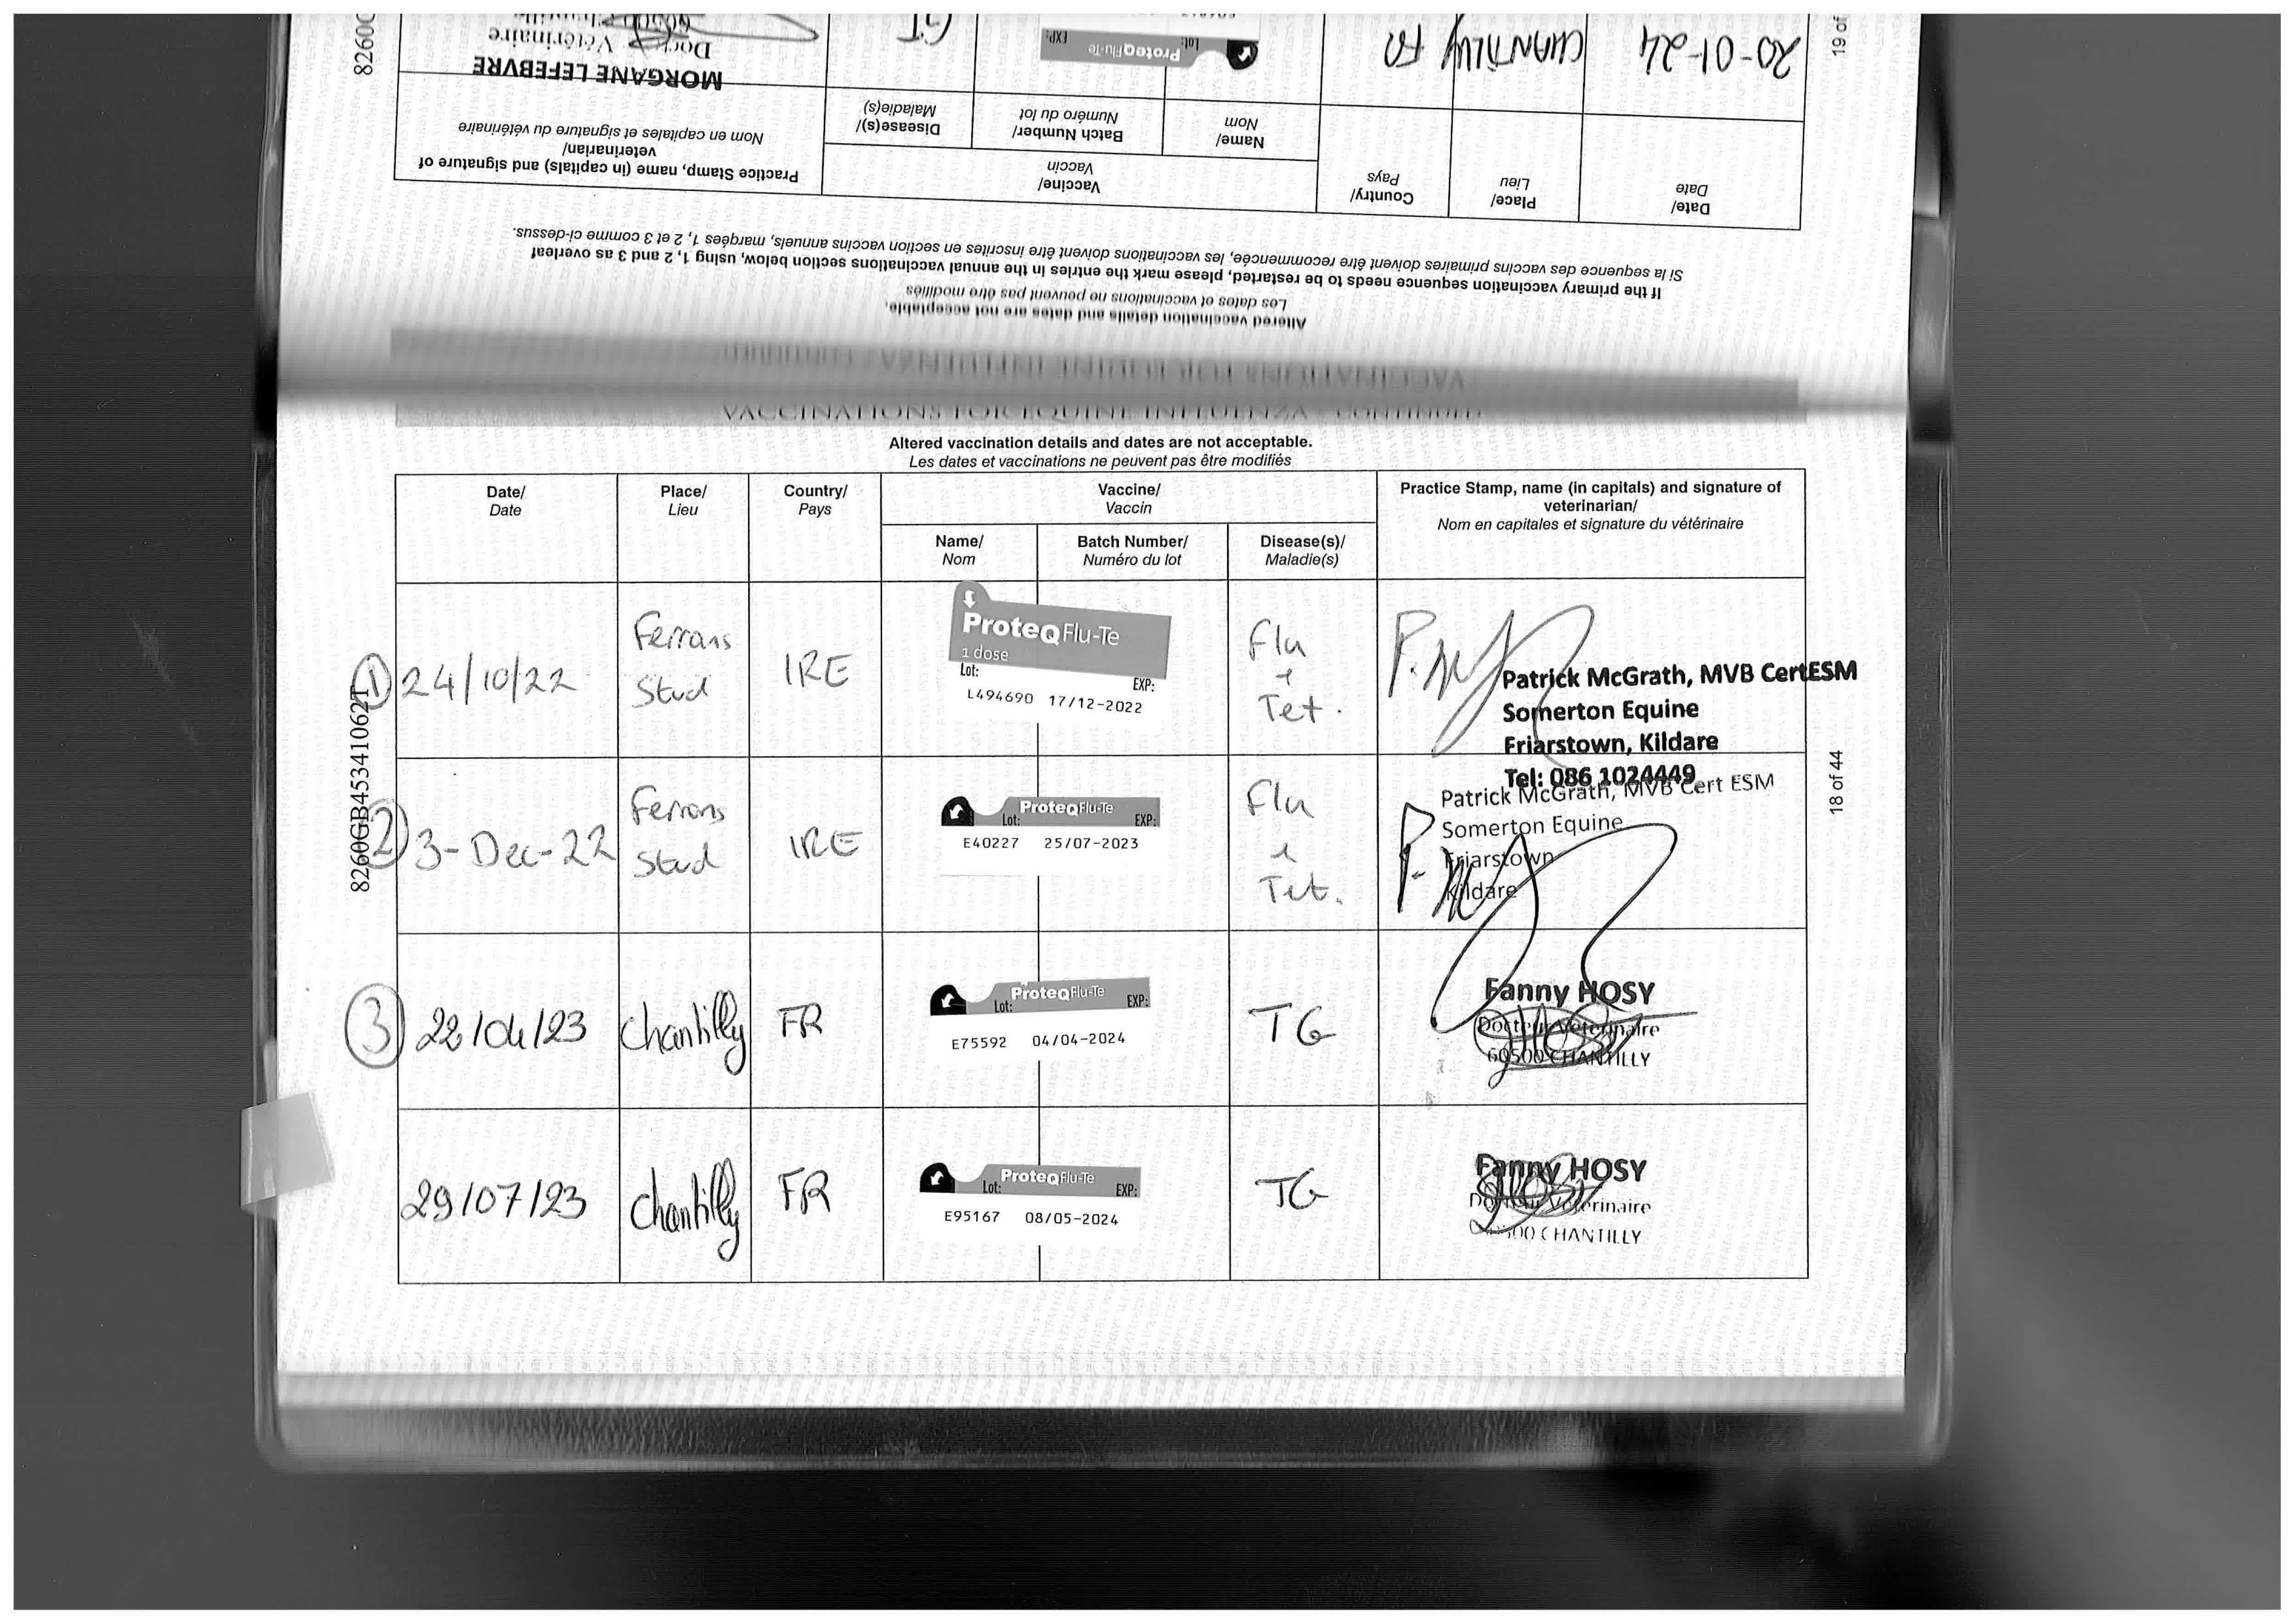 8260G
19 of
20-01-24
CHANTILLY
FR
ProteqFlu-Te
Lot:
EXP:
GT
MORGANE LEFEBVRE
Vétérinaire
Date/
Date
Place/
Lieu
Country/
Pays
Vaccine/
Vaccin
Name/
Nom
Batch Number/
Numéro du lot
Disease(s)/
Maladie(s)
Practice Stamp, name (in capitals) and signature of
veterinarian/
Nom en capitales et signature du vétérinaire
If the primary vaccination sequence needs to be restarted, please mark the entries in the annual vaccinations section below, using 1, 2 and 3 as overleaf
Si la sequence des vaccins primaires doivent être recommencée, les vaccinations doivent être inscrites en section vaccins annuels, marquées 1, 2 et 3 comme ci-dessus.
Altered vaccination details and dates are not acceptable.
Les dates et vaccinations ne peuvent pas être modifiés
VACCINATIONS FOR EQUINE INFLUENZA - CONTINUED
VACCINATIONS FOR EQUINE INFLUENZA - CONTINUED
Altered vaccination details and dates are not acceptable.
Les dates et vaccinations ne peuvent pas être modifiés
Date/
Date
Place/
Lieu
Country/
Pays
Vaccine/
Vaccin
Name/
Nom
Batch Number/
Numéro du lot
Disease(s)/
Maladie(s)
Practice Stamp, name (in capitals) and signature of
veterinarian/
Nom en capitales et signature du vétérinaire
1 24/10/22
Ferrans
Stud
IRE
ProteqFlu-Te
1 dose
Lot:
EXP:
L494690 17/12-2022
Flu
&
Tet.
Patrick McGrath, MVB CertESM
Somerton Equine
Friarstown, Kildare
Tel: 086 1024449
2 3-Dec-22
Ferrans
Stud
IRE
ProteqFlu-Te
Lot:
EXP:
E40227 25/07-2023
Flu
&
Tet.
Patrick McGrath, MVB Cert ESM
Somerton Equine
Friarstown
Kildare
3 22/04/23
Chantilly
FR
ProteqFlu-Te
Lot:
EXP:
E75592 04/04-2024
TG
Fanny HOSY
Docteur Vétérinaire
60500 CHANTILLY
29/07/23
Chantilly
FR
ProteqFlu-Te
Lot:
EXP:
E95167 08/05-2024
TG
Fanny HOSY
Docteur Vétérinaire
CHANTILLY
8260GB45341062T
18 of 44